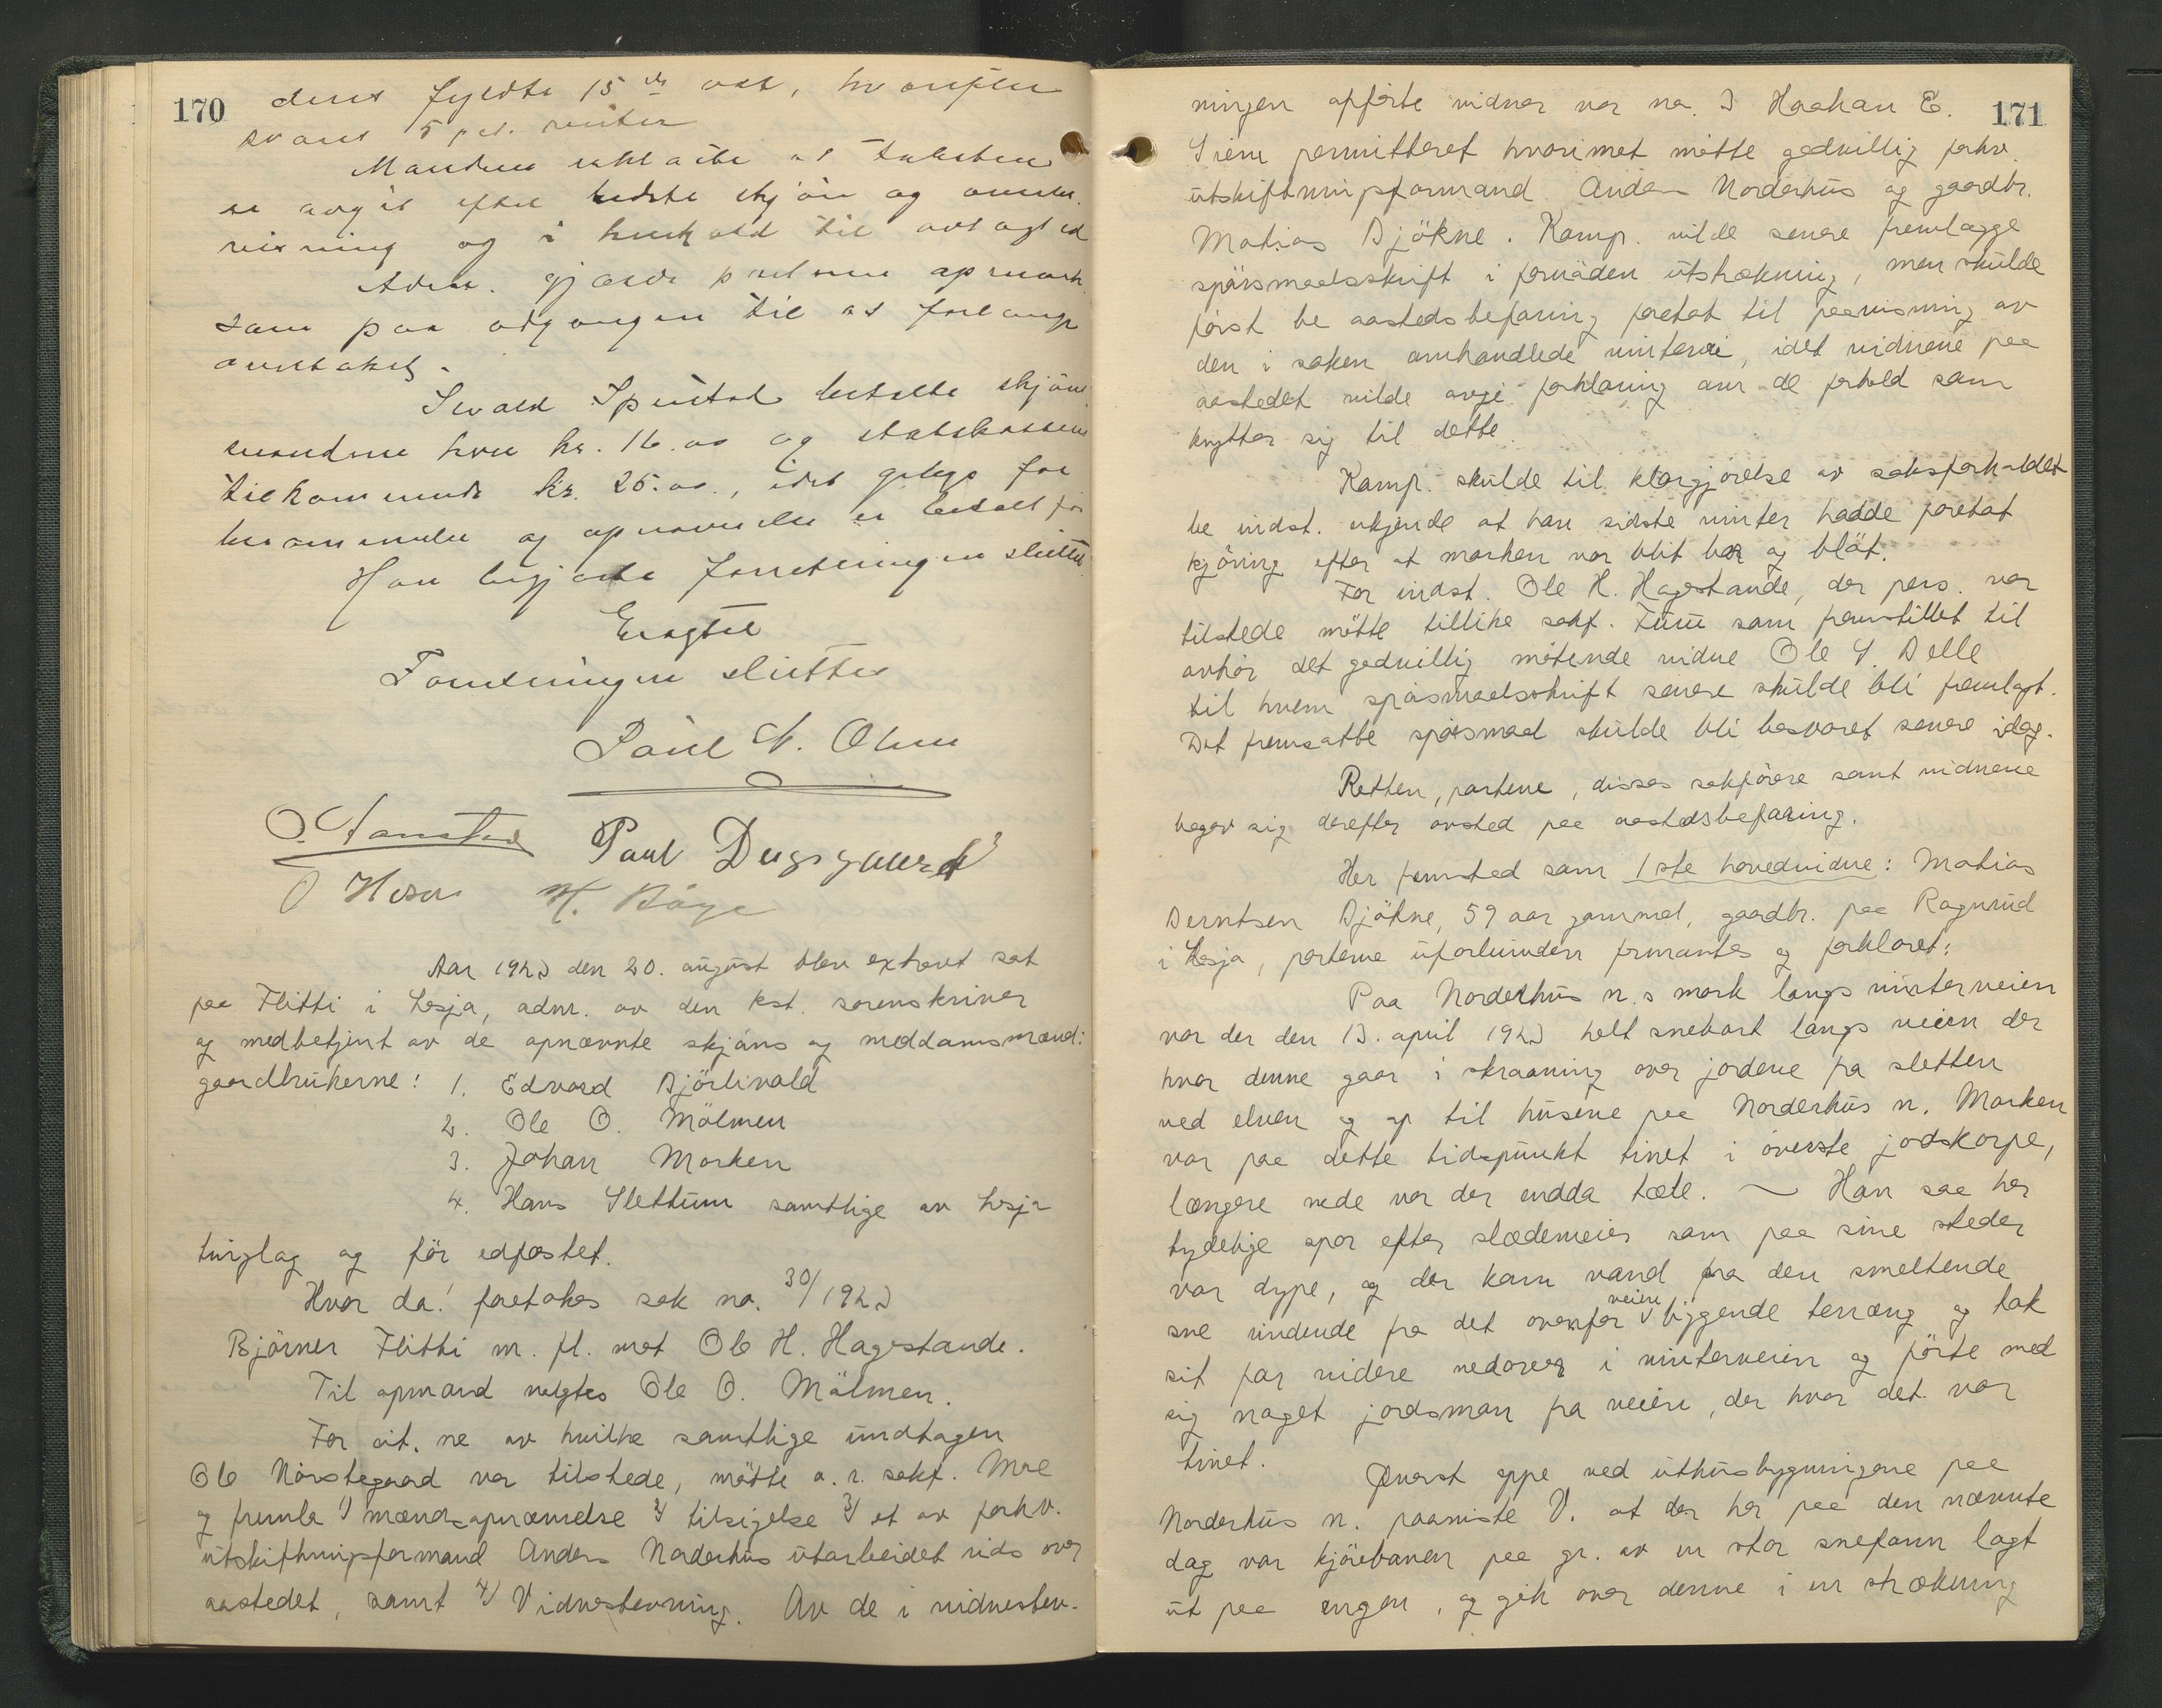 170
deres fyldte 15de aar, hvorefter
svares 5 pct. renter
Mændene erklærte at taksten
er avgit efter bedste skjøn og overbe-
visning og i henhold til avlagt ed
Adm. gjorde partene opmerk-
som paa adgangen til at forlange
overtakst.
Sivald betalte skjøns-
mændene hver kr. 16.00 og statskassens
tilkommende kr. 25.00, idet gebyr for
berammelse og opnævnelse er betalt før
Han begjærte forretningen sluttet.
Eragtet
Forretningen sluttet
Paul N. Olsen
Paul
Aar 1923 den 20. august blev extraret sat
paa Flitti i Lesja, adm. av den kst. sorenskriver
og medbetjent av de opnævnte skjøns og meddomsmænd:
gaardbrukerne: 1. Edvard Bjørlivold
2. Ole O. Mölmen
3. Johan Morken
4. Hans Slettum samtlige av Lesja
tinglag og før edfæstet.
Hvor da! foretokes sak no. 30/1923
Bjørner Flitti m. fl. mot Ole H. Hagestande.
Til opmand valgtes Ole O. Mölmen.
For cit.ne av hvilke samtlige undtagen
Ole Norstegaard var tilstede, mötte o.r. sakf. Moe
og fremla 1) mændsopnævnelse 2) tilsigelse 3) et av forhv.
utskiftningsformand Anders Norderhus utarbeidet rids over
aastedet, samt 4) Vidnestevning. Av de i vidnestev-
171
ningen opførte vidner var no. 3 Haakan E.
permitteret hvorimot møtte godvillig forhv.
utskiftningsformand Anders Norderhus og gaardbr.
Matias Bjökne. Komp. vilde senere fremlægge
spørsmaalsskrift i fornöden utstrækning, men skulde
först be aastedsbefaring foretat til paavisning av
den i saken omhandlede vintervei, idet vidnene paa
aastedet vilde avgi forklaring om de forhold som
knytter sig til dette.
Komp. skulde til klargjörelse av saksforholdet
be indst. vitgjende at han sidste vinter hadde foretat
kjöring efter at marken var blit bar og blöt.
For indst. Ole H. Hagestande, der pers. var
tilstede mötte tillike sakf. som fremstillet til
avhør det godvillig mötende vidne Ole S. Delle
til hvem spørsmaalsskrift senere skulde bli fremlagt.
Det fremsatte spørsmaal skulde bli besvaret senere idag.
Retten, partene, disses sakförere samt vidnene
begav sig derefter avsted paa aastedsbefaring.
Her fremsted som 1ste hovedvidne: Matias
Berntsen Bjökne, 59 aar gammel, gaardbr. paa Ragnrud
i Lesja, partene uforbunden formantes og forklaret:
Paa Norderhus n.s mark langs vinterveien
var der den 13. april 1923 helt snebart langs veien der
hvor denne gaar i skraaning over jordene fra sletten
ved elven og op til husene paa Norderhus n. Marken
var paa dette tidspunkt tinet i överste jordskorpe,
længere nede var der endda tæle. — Han saa her
tydelige spor efter slædemeier som paa sine steder
var dype, og der kom vand fra den smeltende
sne rindende fra det ovenfor veien liggende terræng og tok
sit far videre nedover i vinterveien og förte med
sig noget jordsmon fra veien, der hvor det var
tinet.
Överst oppe ved uthusbygningene paa
Norderhus n. paaviste V. at der her paa den nævnte
dag var kjörebanen paa gr. av en stor snefonn lagt
ut paa engen, og gik over denne i en strækning